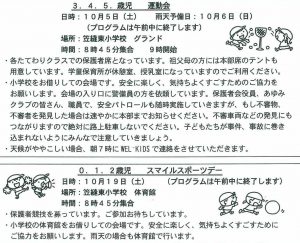 3．4．5．歳児　　運動会
日時：10月5日（土）　雨天予備日：10月6日（日）
（プログラムは午前中に終了します）
場所：笠縫東小学校　グランド
時間：8時45分集合　9時開始
・各たてわりクラスでの保護者席となっています。祖父母の方には本部席のテントも
用意しています。学童保育所が休憩室、授乳室になっていますのでご利用ください。
・小学校をお借りしての会場です。安全に楽しく、気持ちよくすごすためのご協力を
お願いします。会場の入り口に警備員の方を依頼しています。保護者会役員、あゆみ
クラブの皆さん、職員で、安全パトロールも随時実施していきますが、もし不審物、
不審者を発見した場合は速やかに本部までお知らせください。不審車両などの発見にも
つながりますので絶対に路上駐車しないでください。子どもたちが事件、事故に巻き
込まれないようにみんなで注意していきましょう。
・天候がややこしい場合、朝7時にWEL-KIDSで連絡をさせていただきます。
0．1．2歳児　　スマイルスポーツデー
日時：10月19日（土）　（プログラムは午前中に終了します）
場所：笠縫東小学校　体育館
時間：8時45分集合
・保護者競技を募っています。ご参加お待ちしています。
・小学校の体育館をお借りしての会場です。安全に楽しく、気持ちよくすごすために
ご協力をお願いします。雨天の場合も体育館で行います。